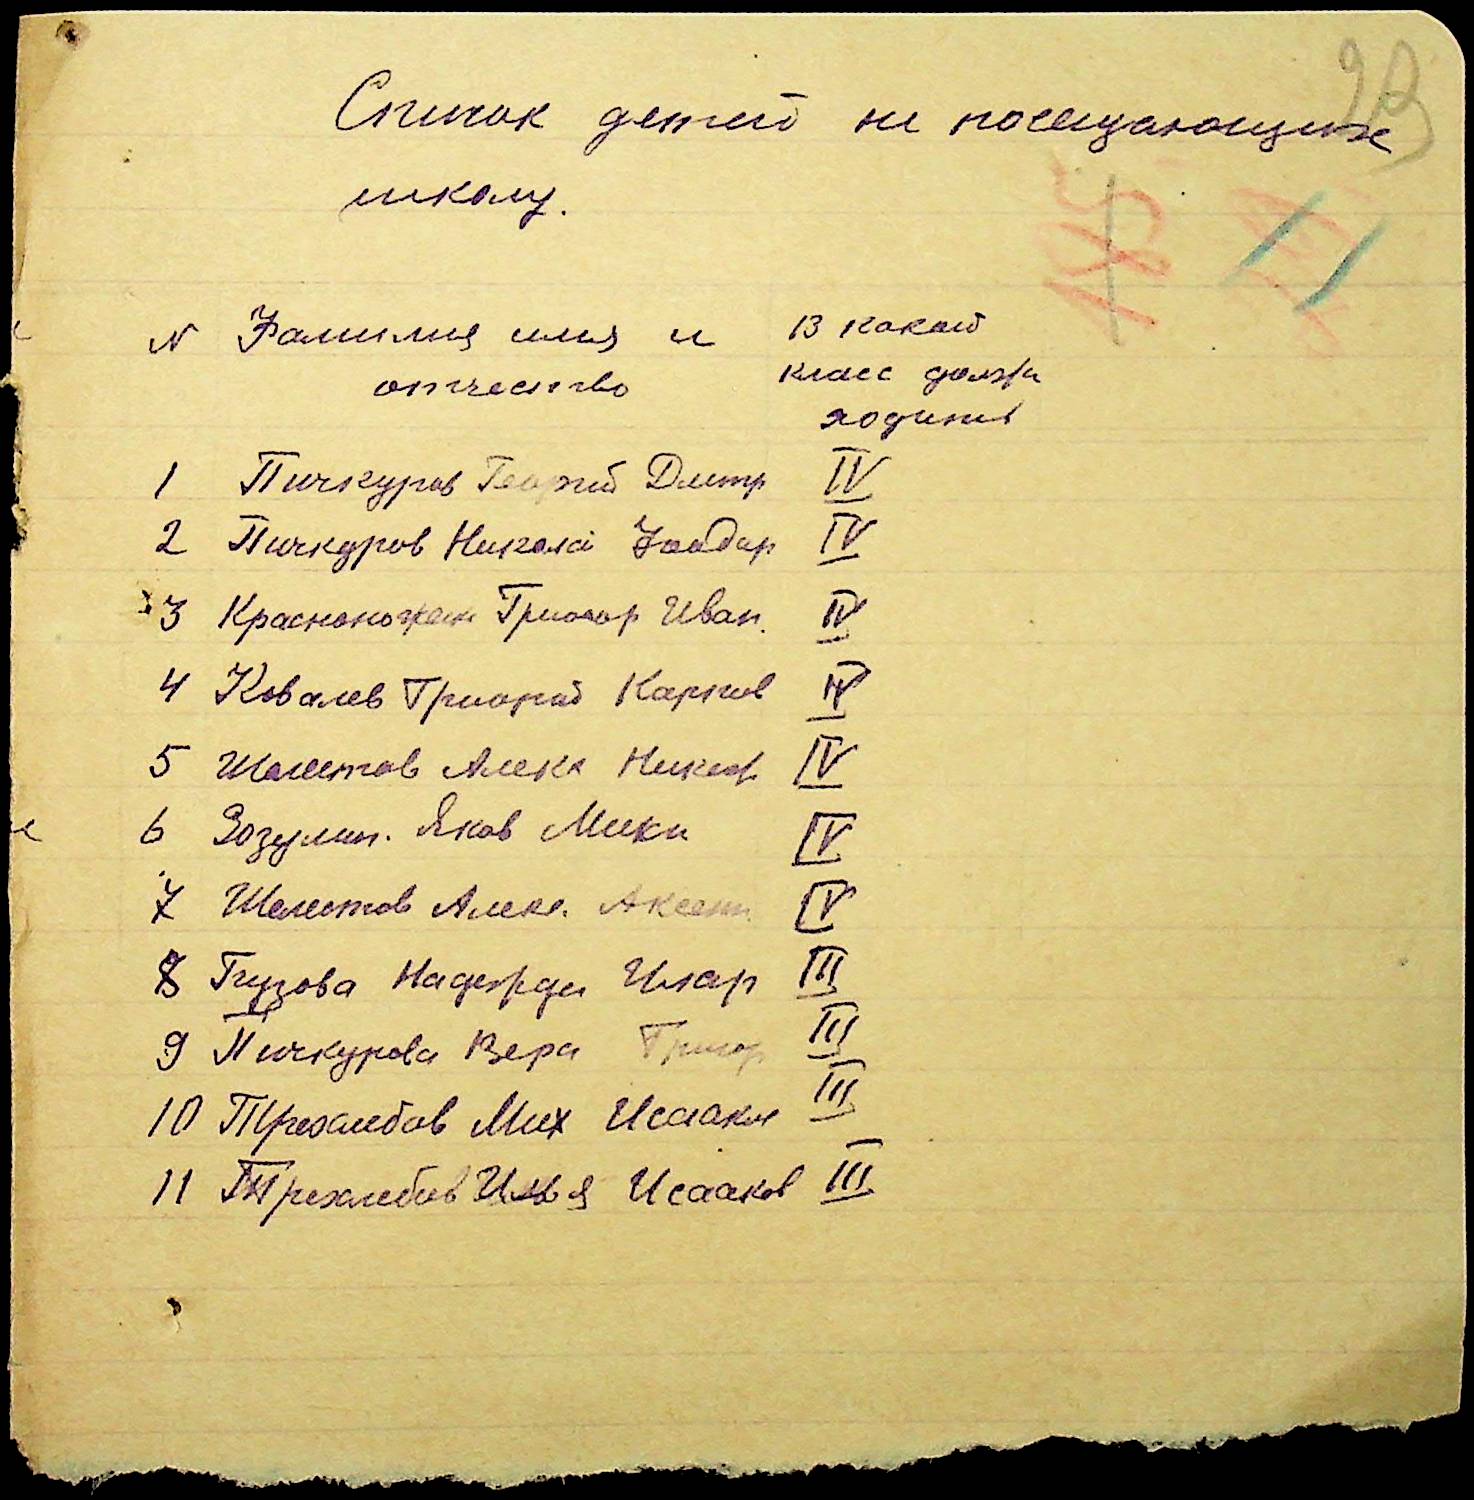 Список детей не посещающих
школу.
N Фамилия имя и В какой
отчество класс должн
ходить
1 Пичкуров Георгий Дмитр IV
2 Пичкуров Николай IV
3 Григор Иван. IV
4 Ковалев Григорий Карпов IV
5 Шелестов Алекс Никиф IV
6 Зозулин. Яков Мики IV
7 Шелестов Алекс. Аксент IV
8 Гузова Надежда Илар III
9 Пичкурова Вера Григор III
10 Трехлебов Мих Исаак III
11 Трехлебов Илья Исааков III